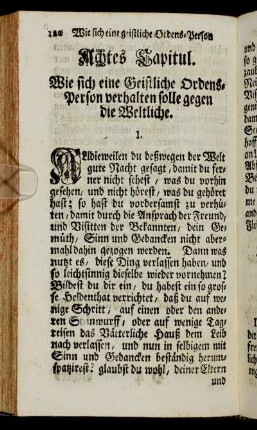 120 Wie sich eine geistliche Ordens-Person
Achtes Capitul.
Wie sich eine Geistliche Ordens-
Person verhalten solle gegen
die Weltliche.
I.
Aldieweilen du deßwegen der Welt
gute Nacht gesagt, damit du fer-
ner nicht sehest / was du vorhin
gesehen, und nicht hörest, was du gehöret
hast; so hast du vordersamst zu verhü-
ten, damit durch die Ansprach der Freund,
und Visitten der Bekannten, dein Ge-
müth, Sinn und Gedancken nicht aber-
mahl dahin gezogen werden. Dann was
nutzt es, diese Ding verlassen haben, und
so leichtsinnig dieselbe wieder vornehmen?
Bildest du dir ein, du habest ein so gros-
se Heldenthat verrichtet, daß du auf we-
nige Schritt, auf einen oder den ande-
ren Steinwurff, oder auf wenige Tag-
reisen das Vätterliche Hauß dem Leib
nach verlassen, und nun in selbigem mit
Sinn und Gedancken beständig herum-
spatzirest? glaubst du wohl, deiner Eltern
und